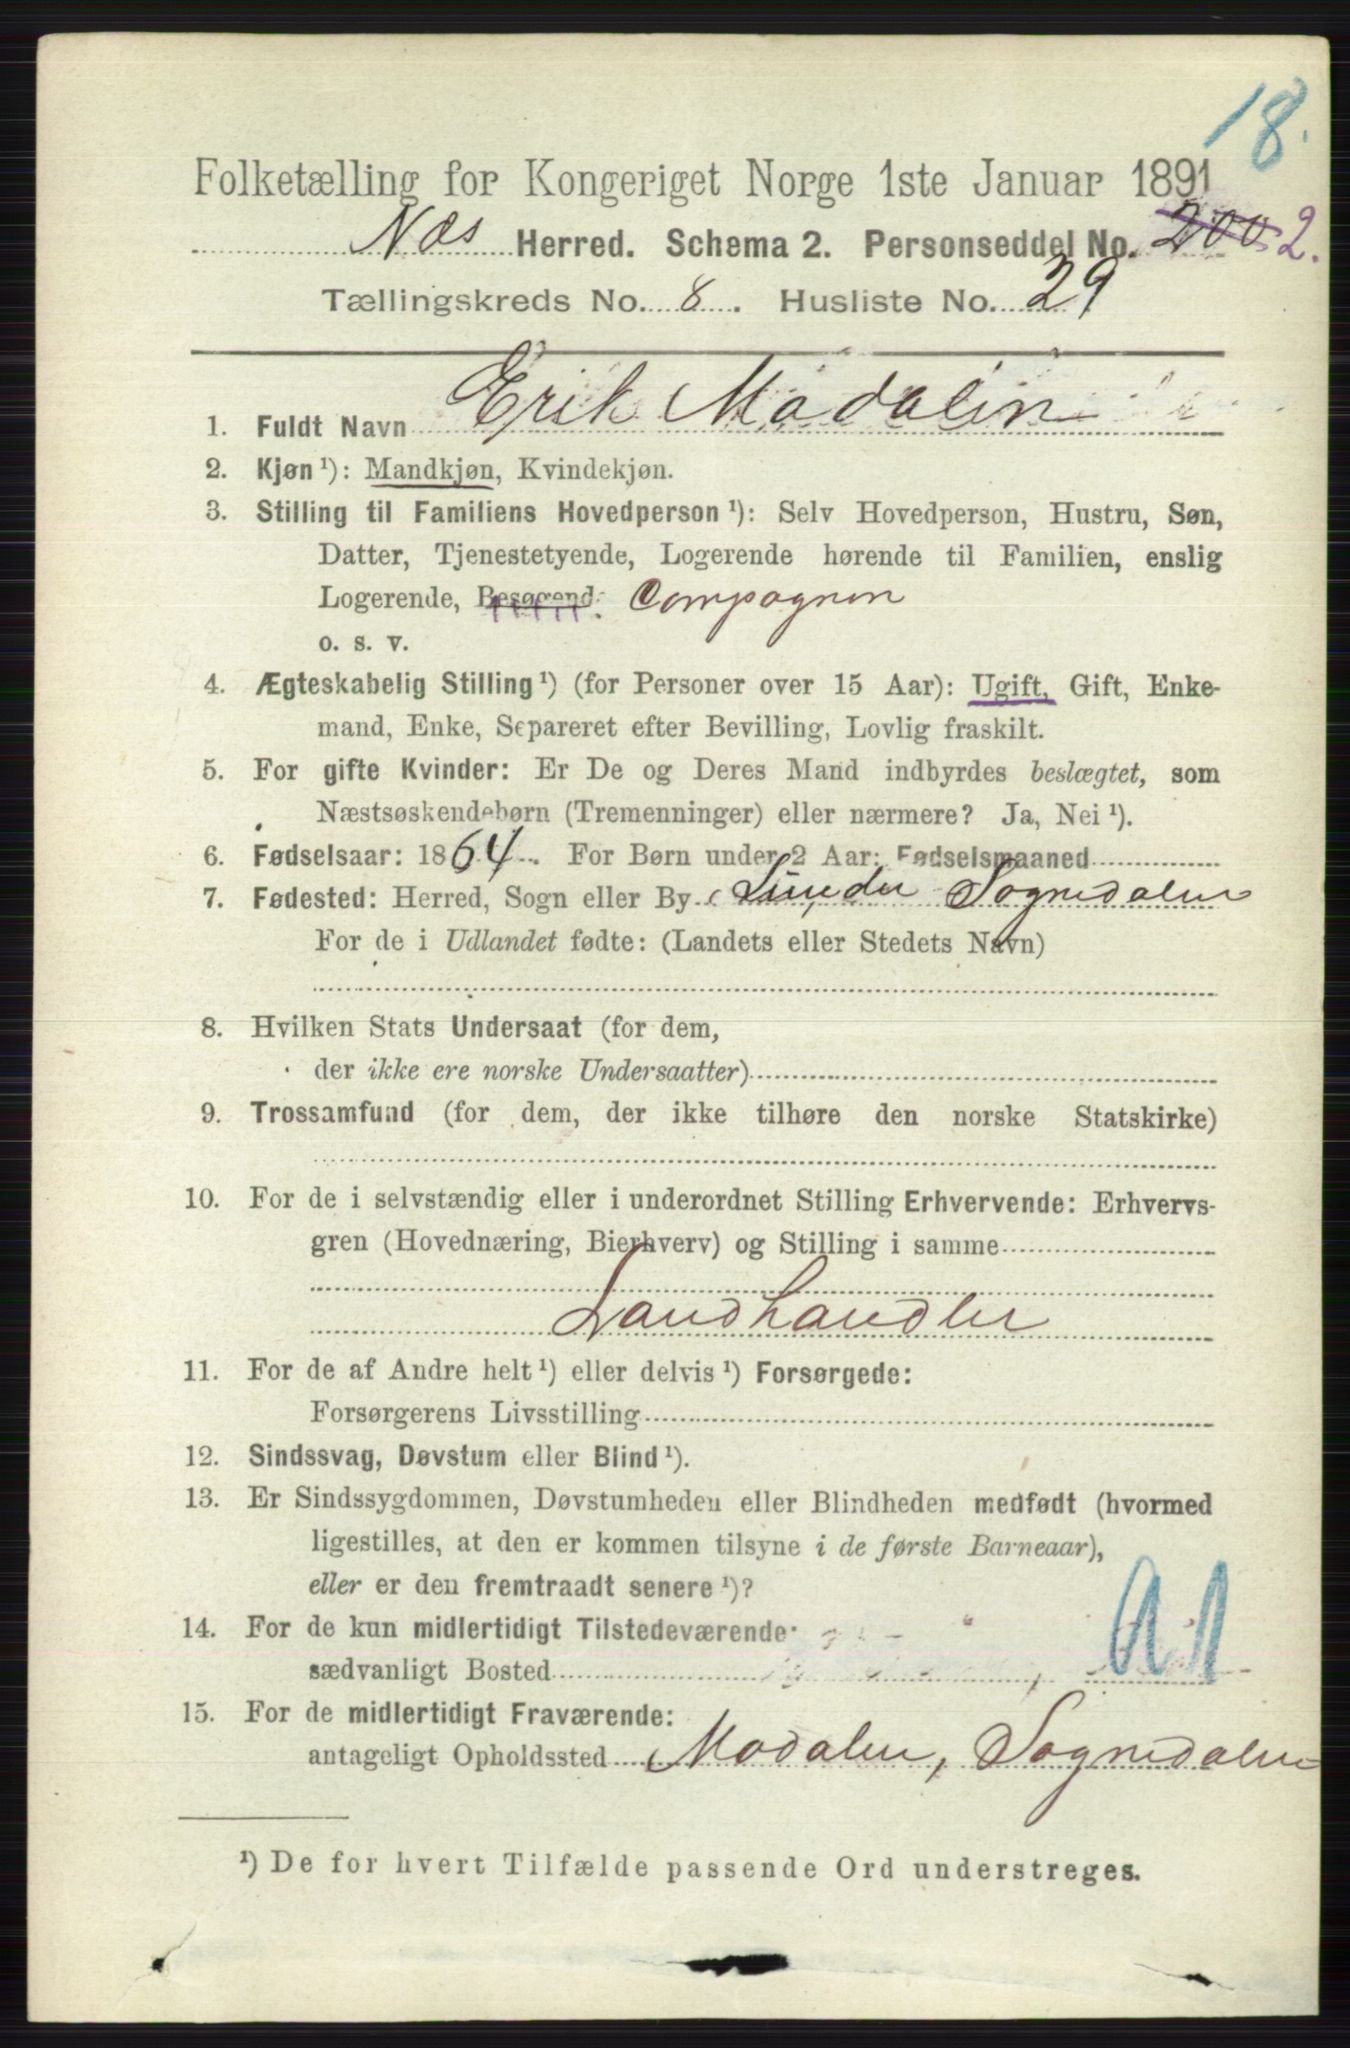 18.
Folketælling for Kongeriget Norge 1ste Januar 1891
Næs Herred. Schema 2. Personseddel No. 200 2.
Tællingskreds No. 8. Husliste No. 29
1. Fuldt Navn Erik Modalen
2. Kjøn ¹): Mandkjøn, Kvindekjøn.
3. Stilling til Familiens Hovedperson ¹): Selv Hovedperson, Hustru, Søn,
Datter, Tjenestetyende, Logerende hørende til Familien, enslig
Logerende, Besøgend. Compagnon
o. s. v.
4. Ægteskabelig Stilling ¹) (for Personer over 15 Aar): Ugift, Gift, Enke-
mand, Enke, Separeret efter Bevilling, Lovlig fraskilt.
5. For gifte Kvinder: Er De og Deres Mand indbyrdes beslægtet, som
Næstsøskendebørn (Tremenninger) eller nærmere? Ja, Nei ¹).
6. Fødselsaar: 1864. For Børn under 2 Aar: Fødselsmaaned
7. Fødested: Herred, Sogn eller By Lunder Sognedalen
For de i Udlandet fødte: (Landets eller Stedets Navn)
8. Hvilken Stats Undersaat (for dem,
der ikke ere norske Undersaatter)
9. Trossamfund (for dem, der ikke tilhøre den norske Statskirke)
10. For de i selvstændig eller i underordnet Stilling Erhvervende: Erhvervs-
gren (Hovednæring, Bierhverv) og Stilling i samme
Landhandler
11. For de af Andre helt ¹) eller delvis ¹) Forsørgede:
Forsørgerens Livsstilling
12. Sindssvag, Døvstum eller Blind ¹).
13. Er Sindssygdommen, Døvstumheden eller Blindheden medfødt (hvormed
ligestilles, at den er kommen tilsyne i de første Barneaar),
eller er den fremtraadt senere ¹)?
14. For de kun midlertidigt Tilstedeværende:
sædvanligt Bosted
15. For de midlertidigt Fraværende:
antageligt Opholdssted Modalen, Sognedalen
¹) De for hvert Tilfælde passende Ord understreges.